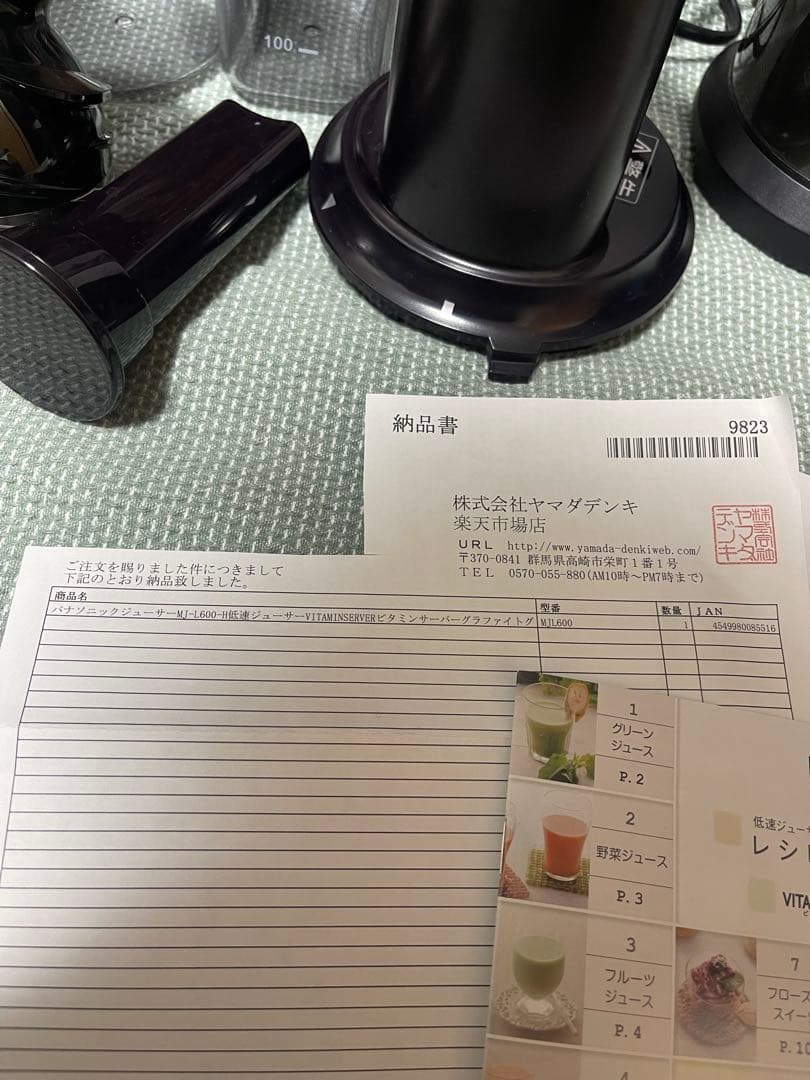 100
警告
納品書
9823
株式会社ヤマダデンキ
楽天市場店
URL http://www.yamada-denkiweb.com/
〒370-0841 群馬県高崎市栄町1番1号
TEL 0570-055-880(AM10時～PM7時まで)
株式会社
ヤマダ
デンキ
ご注文を賜りました件につきまして
下記のとおり納品致しました。
商品名 型番 数量 JAN
パナソニックジューサーMJ-L600-H低速ジューサーVITAMINSERVERビタミンサーバーグラファイトグ MJL600 1 4549980085516
1
グリーン
ジュース
P.2
2
野菜ジュース
P.3
3
フルーツ
ジュース
P.4
4
低速ジュー
レシ
VITA
7
フローズ
スイー
P.10